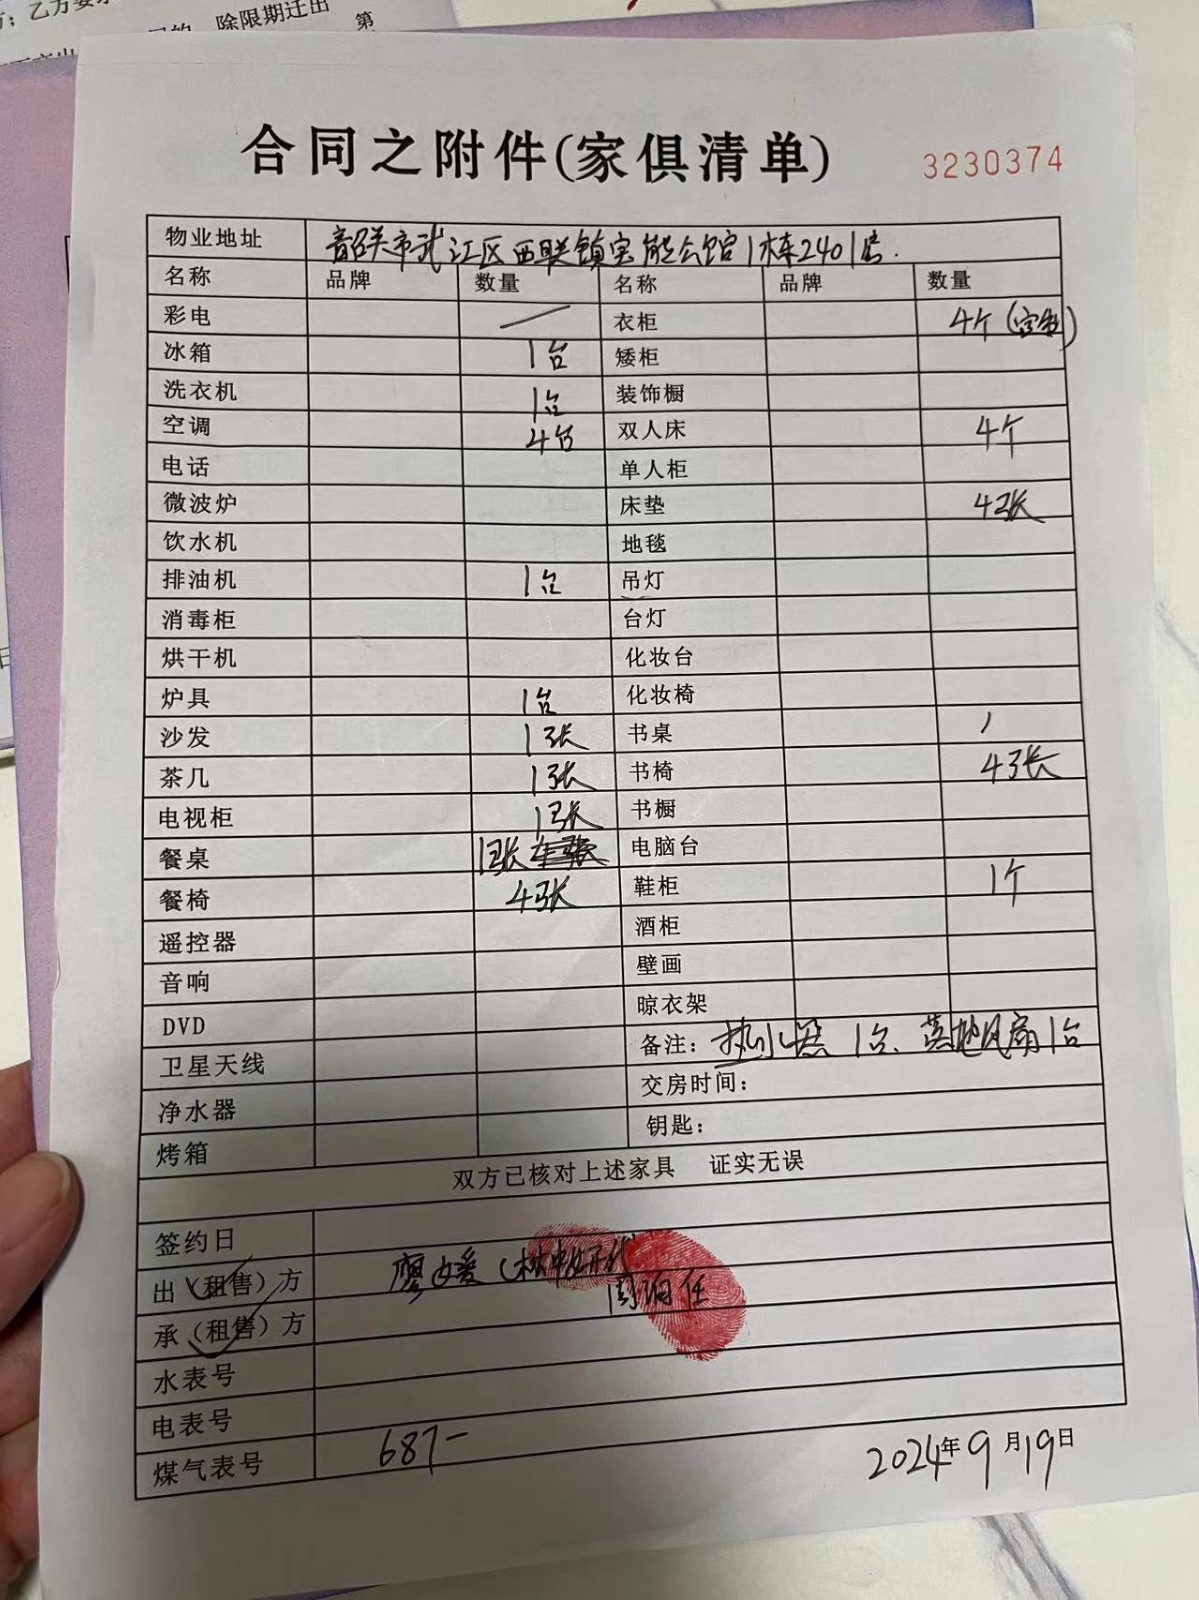 乙方要
除限期迁出
第
合同之附件(家俱清单)
3230374
物业地址 韶关市武江区西联镇宝能公馆1栋2401房.
名称 品牌 数量 名称 品牌 数量
彩电 衣柜 4个(定制)
冰箱 1台 矮柜
洗衣机 1台 装饰橱
空调 4台 双人床 4个
电话 单人柜
微波炉 床垫 4张
饮水机 地毯
排油机 1台 吊灯
消毒柜 台灯
烘干机 化妆台
炉具 1台 化妆椅
沙发 1张 书桌 1
茶几 1张 书椅 4张
电视柜 1张 书橱
餐桌 1张 电脑台
餐椅 4张 鞋柜 1个
遥控器 酒柜
音响 壁画
DVD 晾衣架
卫星天线 备注: 热水器 1台、落地风扇1台
净水器 交房时间:
烤箱 钥匙:
双方已核对上述家具 证实无误
签约日
出(租售)方 廖媛
承(租售)方
水表号
电表号
煤气表号 687-
2024年9月19日